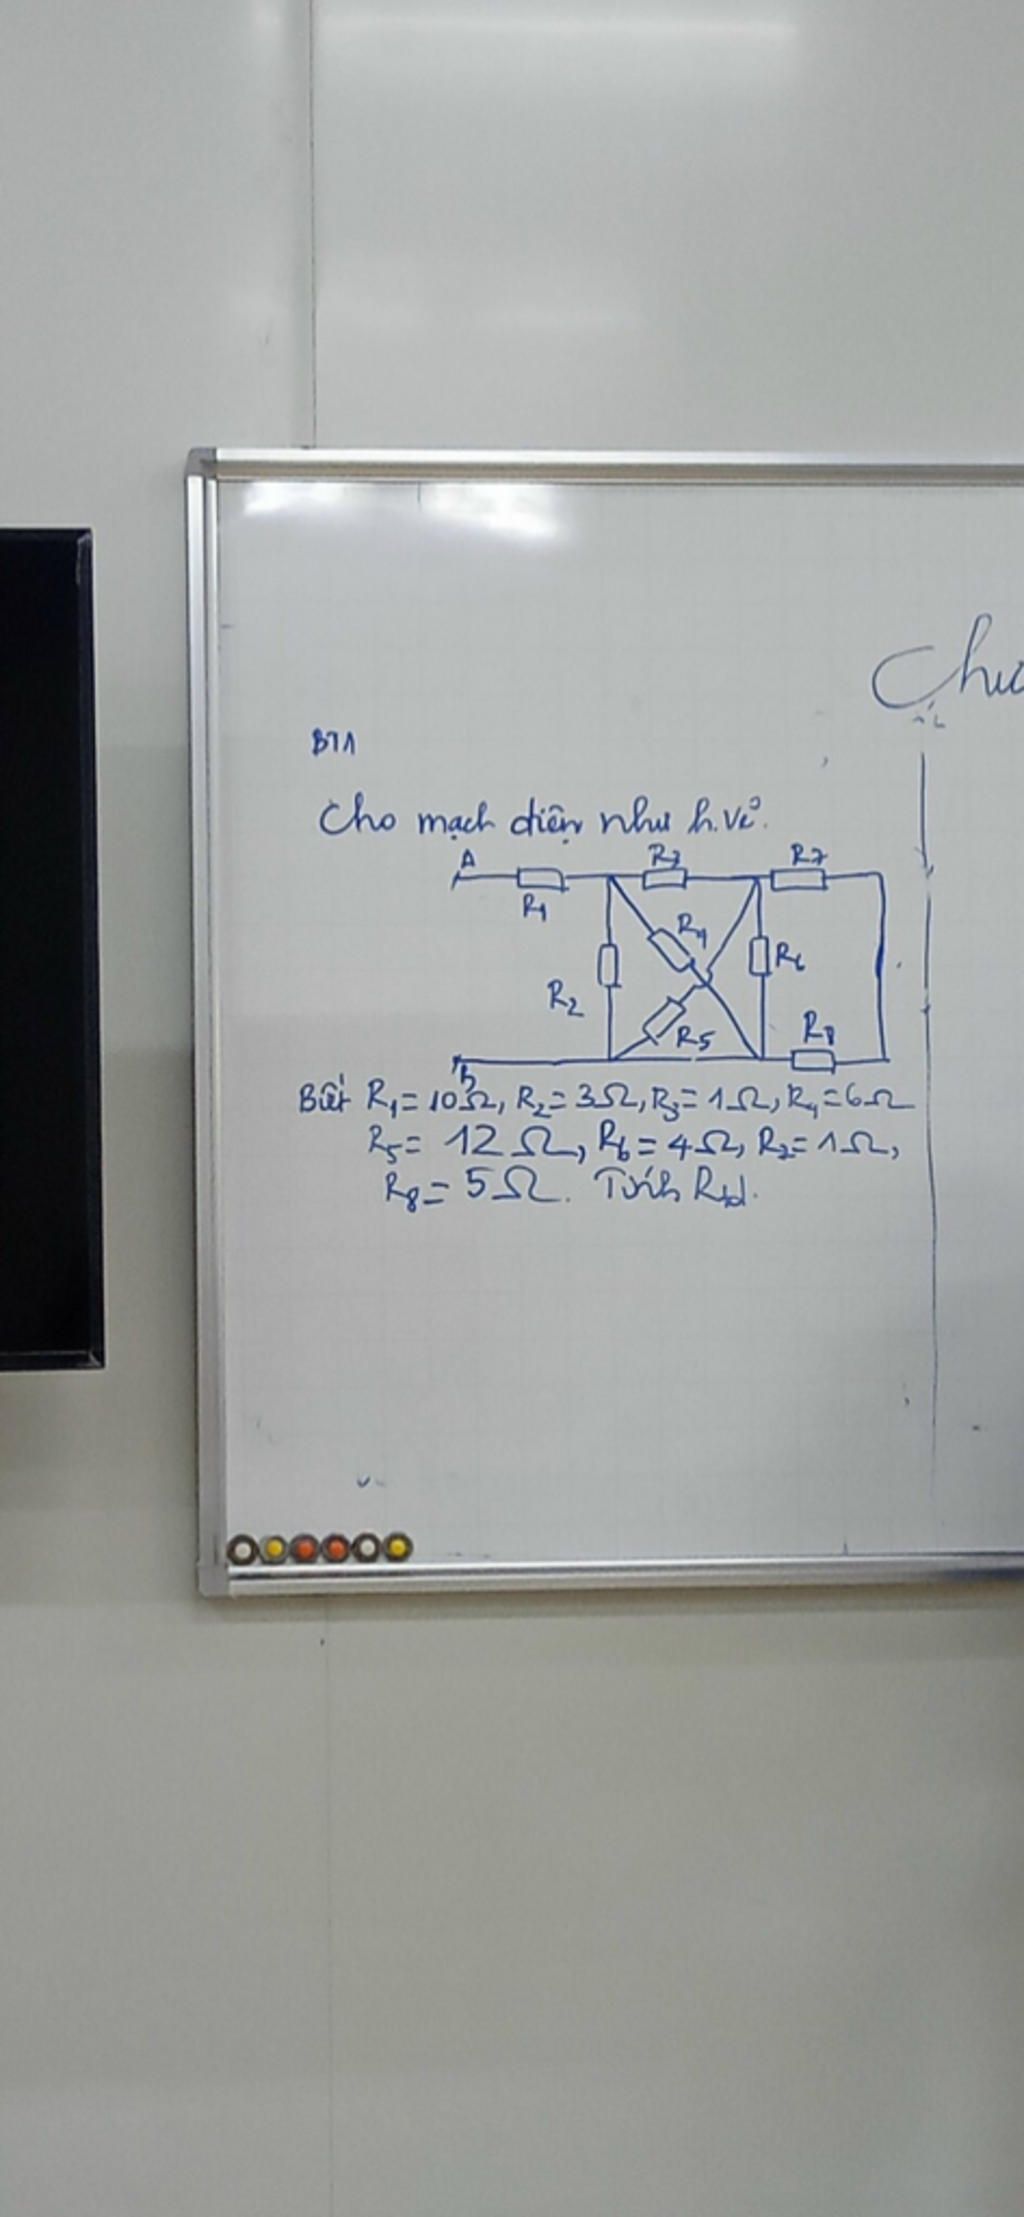 Chư
BT1
Cho mạch điện như h.vẽ.
A R1 R3 R7
R4 R6
R2 R5 R8
B
Biết R1 = 10Ω, R2 = 3Ω, R3 = 1Ω, R4 = 6Ω
R5 = 12Ω, R6 = 4Ω, R7 = 1Ω,
R8 = 5Ω. Tính Rtđ.